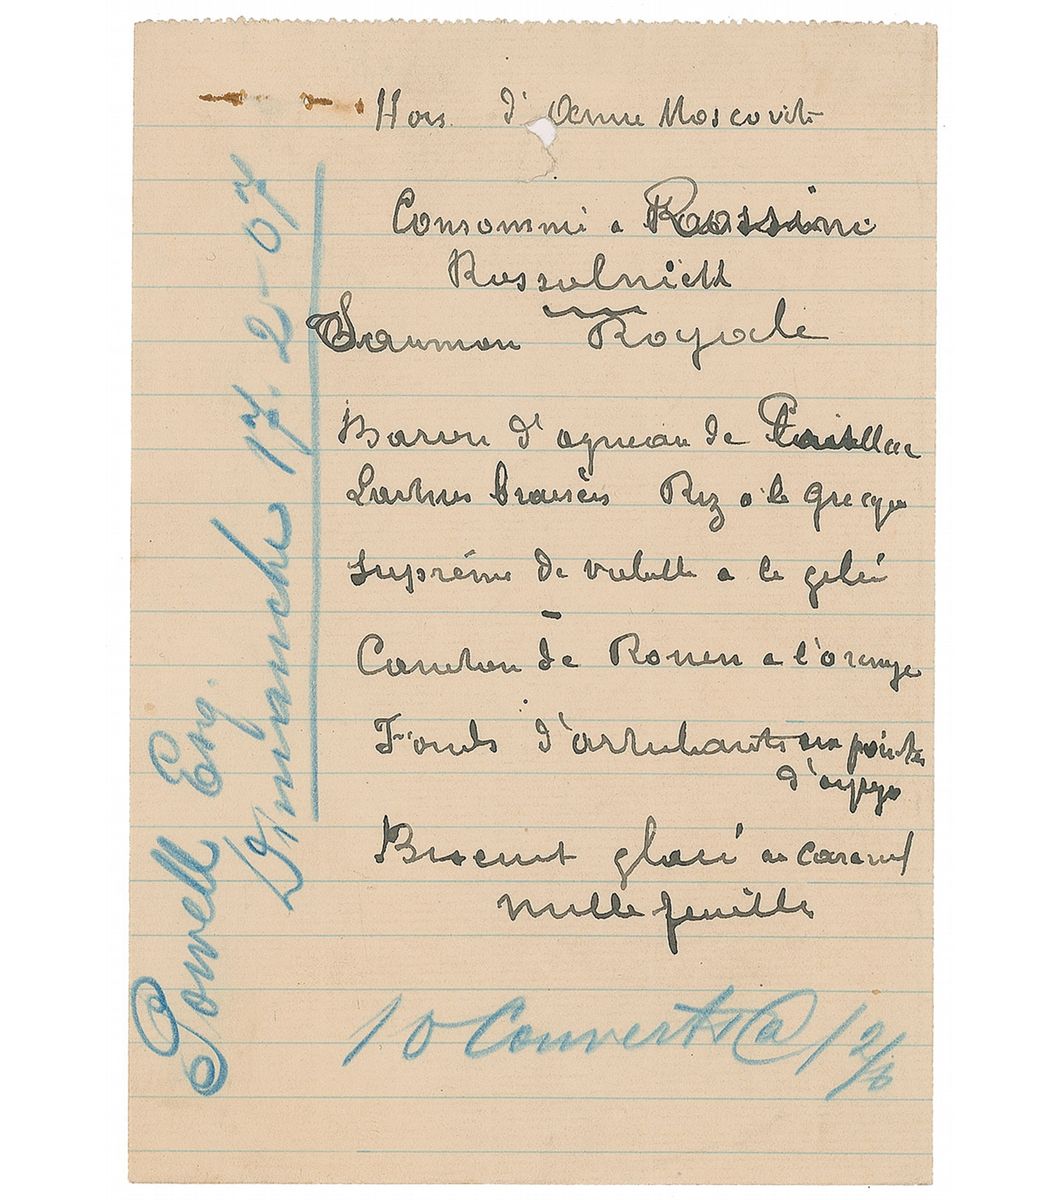 Hors d'Oeuvre Moscovite
Consommé a Rossini
Rossolnick
Saumon Royale
Baron d'agneau de Pauillac
Laitues braisées Riz a la Grecque
Suprême de volaille a la gelée
Caneton de Rouen a l'orange
Fonds d'artichauts aux pointes
d'asperges
Biscuit glacé au caramel
Mille feuilles
10 Couverts @ 12/6
Powell Esq.
Dimanche 17.2-07